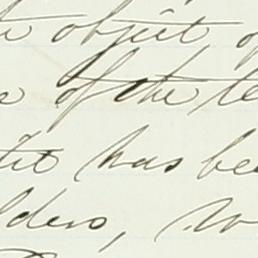 object of
of the te
tit has bee
lders, w